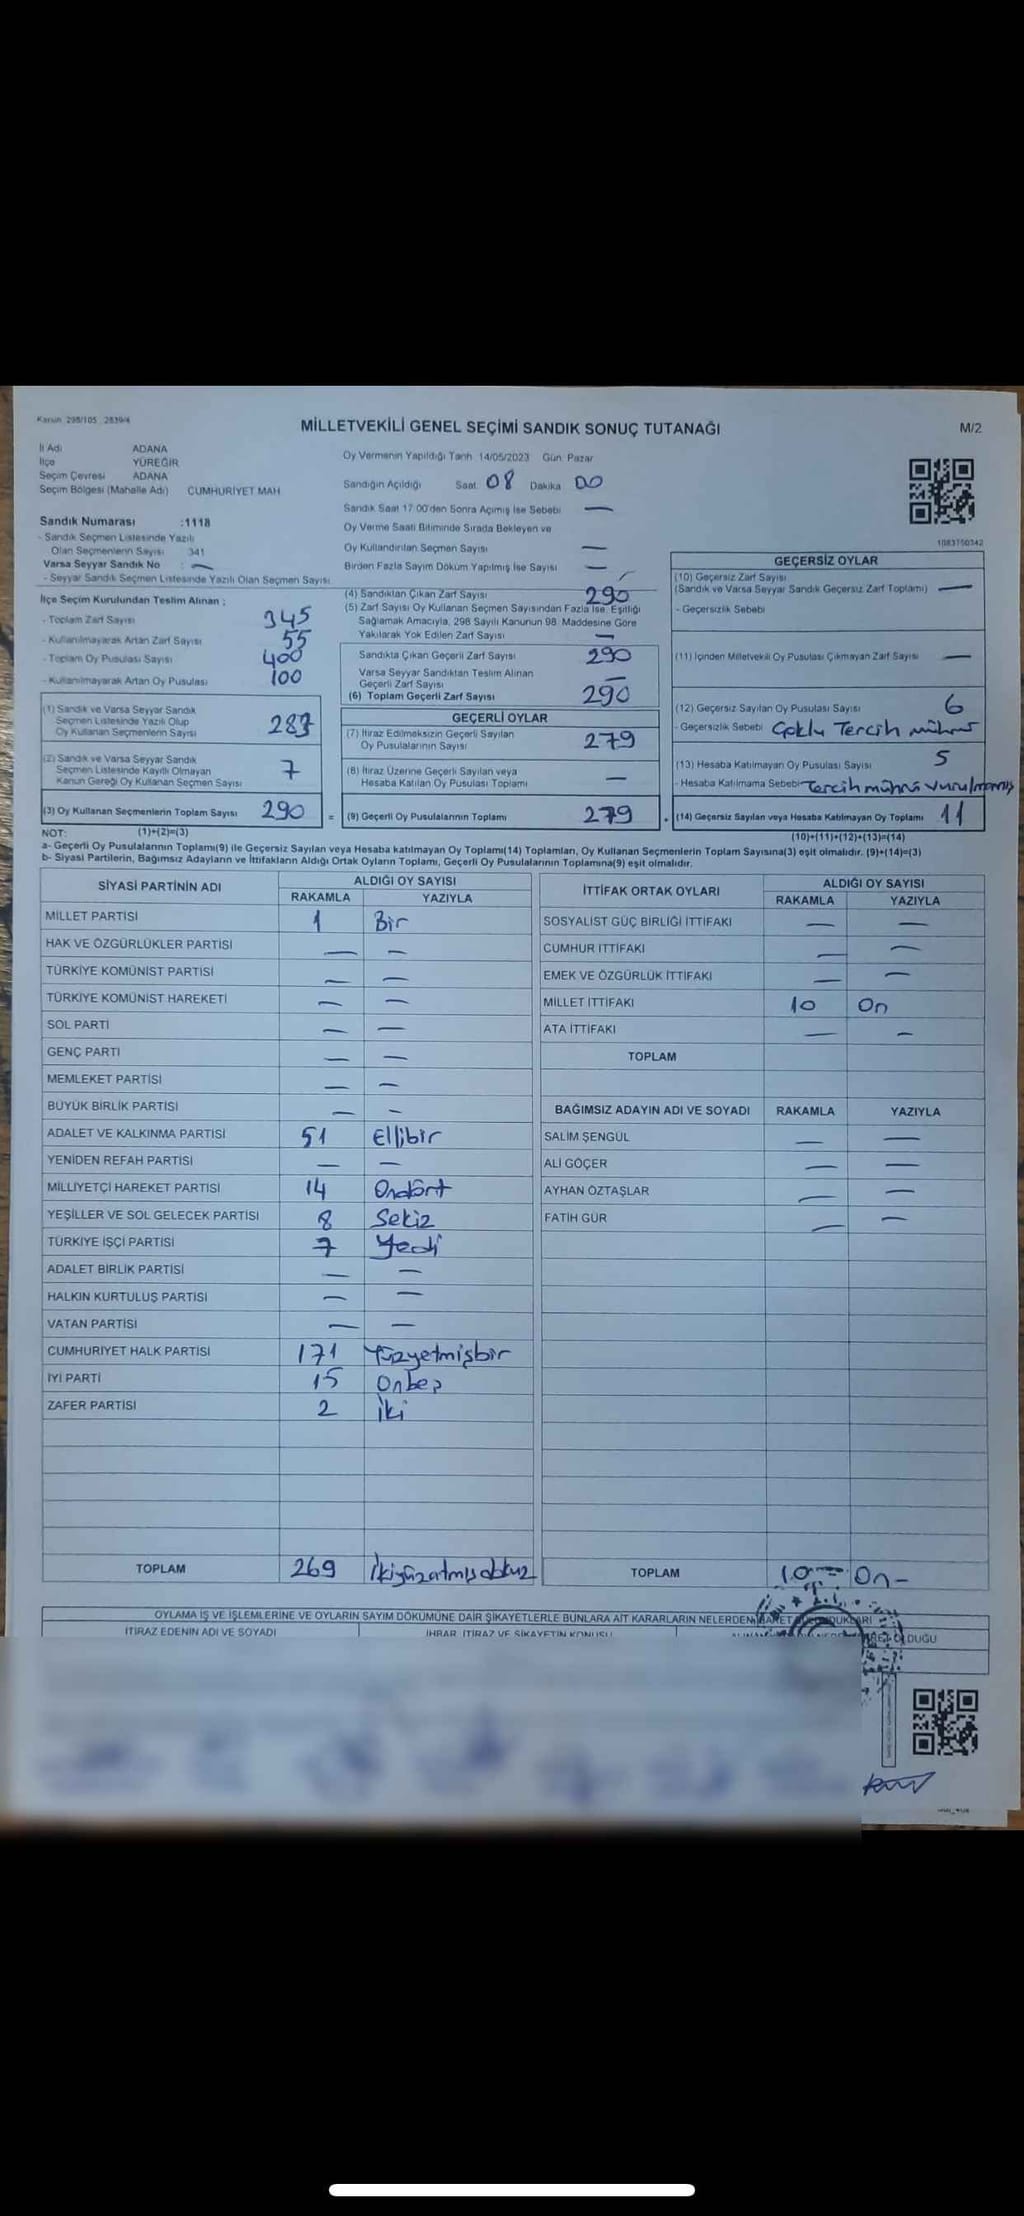 Kanun 298/105 2839/4
MİLLETVEKİLİ GENEL SEÇİMİ SANDIK SONUÇ TUTANAĞI
M/2
İl Adı ADANA
İlçe YÜREĞİR
Seçim Çevresi ADANA
Seçim Bölgesi (Mahalle Adı) CUMHURİYET MAH
Sandık Numarası :1118
- Sandık Seçmen Listesinde Yazılı
Olan Seçmenlerin Sayısı 341
Varsa Seyyar Sandık No : —
- Seyyar Sandık Seçmen Listesinde Yazılı Olan Seçmen Sayısı
Oy Vermenin Yapıldığı Tarih 14/05/2023 Gün: Pazar
Sandığın Açıldığı Saat: 08 Dakika 00
Sandık Saat 17:00'den Sonra Açılmış İse Sebebi —
Oy Verme Saati Bitiminde Sırada Bekleyen ve
Oy Kullandırılan Seçmen Sayısı —
Birden Fazla Sayım Döküm Yapılmış İse Sayısı —
1083750342
İlçe Seçim Kurulundan Teslim Alınan :
- Toplam Zarf Sayısı 345
- Kullanılmayarak Artan Zarf Sayısı 55
- Toplam Oy Pusulası Sayısı 400
- Kullanılmayarak Artan Oy Pusulası 100
(1) Sandık ve Varsa Seyyar Sandık
Seçmen Listesinde Yazılı Olup
Oy Kullanan Seçmenlerin Sayısı 283
(2) Sandık ve Varsa Seyyar Sandık
Seçmen Listesinde Kayıtlı Olmayan
Kanun Gereği Oy Kullanan Seçmen Sayısı 7
(3) Oy Kullanan Seçmenlerin Toplam Sayısı 290 =
(1)+(2)=(3)
(4) Sandıktan Çıkan Zarf Sayısı 290
(5) Zarf Sayısı Oy Kullanan Seçmen Sayısından Fazla İse, Eşitliği
Sağlamak Amacıyla, 298 Sayılı Kanunun 98. Maddesine Göre
Yakılarak Yok Edilen Zarf Sayısı —
Sandıkta Çıkan Geçerli Zarf Sayısı 290
Varsa Seyyar Sandıktan Teslim Alınan
Geçerli Zarf Sayısı —
(6) Toplam Geçerli Zarf Sayısı 290
GEÇERLİ OYLAR
(7) İtiraz Edilmeksizin Geçerli Sayılan
Oy Pusulalarının Sayısı 279
(8) İtiraz Üzerine Geçerli Sayılan veya
Hesaba Katılan Oy Pusulası Toplamı —
(9) Geçerli Oy Pusulalarının Toplamı 279
GEÇERSİZ OYLAR
(10) Geçersiz Zarf Sayısı
(Sandık ve Varsa Seyyar Sandık Geçersiz Zarf Toplamı) —
- Geçersizlik Sebebi
(11) İçinden Milletvekili Oy Pusulası Çıkmayan Zarf Sayısı —
(12) Geçersiz Sayılan Oy Pusulası Sayısı 6
- Geçersizlik Sebebi Çoklu Tercih mührü
(13) Hesaba Katılmayan Oy Pusulası Sayısı 5
- Hesaba Katılmama Sebebi Tercih mührü vurulmamış
(14) Geçersiz Sayılan veya Hesaba Katılmayan Oy Toplamı 11
(10)+(11)+(12)+(13)=(14)
NOT:
a- Geçerli Oy Pusulalarının Toplamı(9) ile Geçersiz Sayılan veya Hesaba katılmayan Oy Toplamı(14) Toplamları, Oy Kullanan Seçmenlerin Toplam Sayısına(3) eşit olmalıdır. (9)+(14)=(3)
b- Siyasi Partilerin, Bağımsız Adayların ve İttifakların Aldığı Ortak Oyların Toplamı, Geçerli Oy Pusulalarının Toplamına(9) eşit olmalıdır.
SİYASİ PARTİNİN ADI ALDIĞI OY SAYISI
RAKAMLA YAZIYLA
MİLLET PARTİSİ 1 Bir
HAK VE ÖZGÜRLÜKLER PARTİSİ — —
TÜRKİYE KOMÜNİST PARTİSİ — —
TÜRKİYE KOMÜNİST HAREKETİ — —
SOL PARTİ — —
GENÇ PARTİ — —
MEMLEKET PARTİSİ — —
BÜYÜK BİRLİK PARTİSİ — —
ADALET VE KALKINMA PARTİSİ 51 Ellibir
YENİDEN REFAH PARTİSİ — —
MİLLİYETÇİ HAREKET PARTİSİ 14 Ondört
YEŞİLLER VE SOL GELECEK PARTİSİ 8 Sekiz
TÜRKİYE İŞÇİ PARTİSİ 7 Yedi
ADALET BİRLİK PARTİSİ — —
HALKIN KURTULUŞ PARTİSİ — —
VATAN PARTİSİ — —
CUMHURİYET HALK PARTİSİ 171 Yüzyetmişbir
İYİ PARTİ 15 Onbeş
ZAFER PARTİSİ 2 İki
TOPLAM 269 İkiyüzatmışdokuz
İTTİFAK ORTAK OYLARI ALDIĞI OY SAYISI
RAKAMLA YAZIYLA
SOSYALİST GÜÇ BİRLİĞİ İTTİFAKI — —
CUMHUR İTTİFAKI — —
EMEK VE ÖZGÜRLÜK İTTİFAKI — —
MİLLET İTTİFAKI 10 On
ATA İTTİFAKI — —
TOPLAM
BAĞIMSIZ ADAYIN ADI VE SOYADI RAKAMLA YAZIYLA
SALİM ŞENGÜL — —
ALİ GÖÇER — —
AYHAN ÖZTAŞLAR — —
FATİH GÜR — —
TOPLAM 10 — On —
OYLAMA İŞ VE İŞLEMLERİNE VE OYLARIN SAYIM DÖKÜMÜNE DAİR ŞİKAYETLERLE BUNLARA AİT KARARLARIN NELERDEN
İTİRAZ EDENİN ADI VE SOYADI İHBAR, İTİRAZ VE ŞİKAYETİN KONUSU OLDUĞU